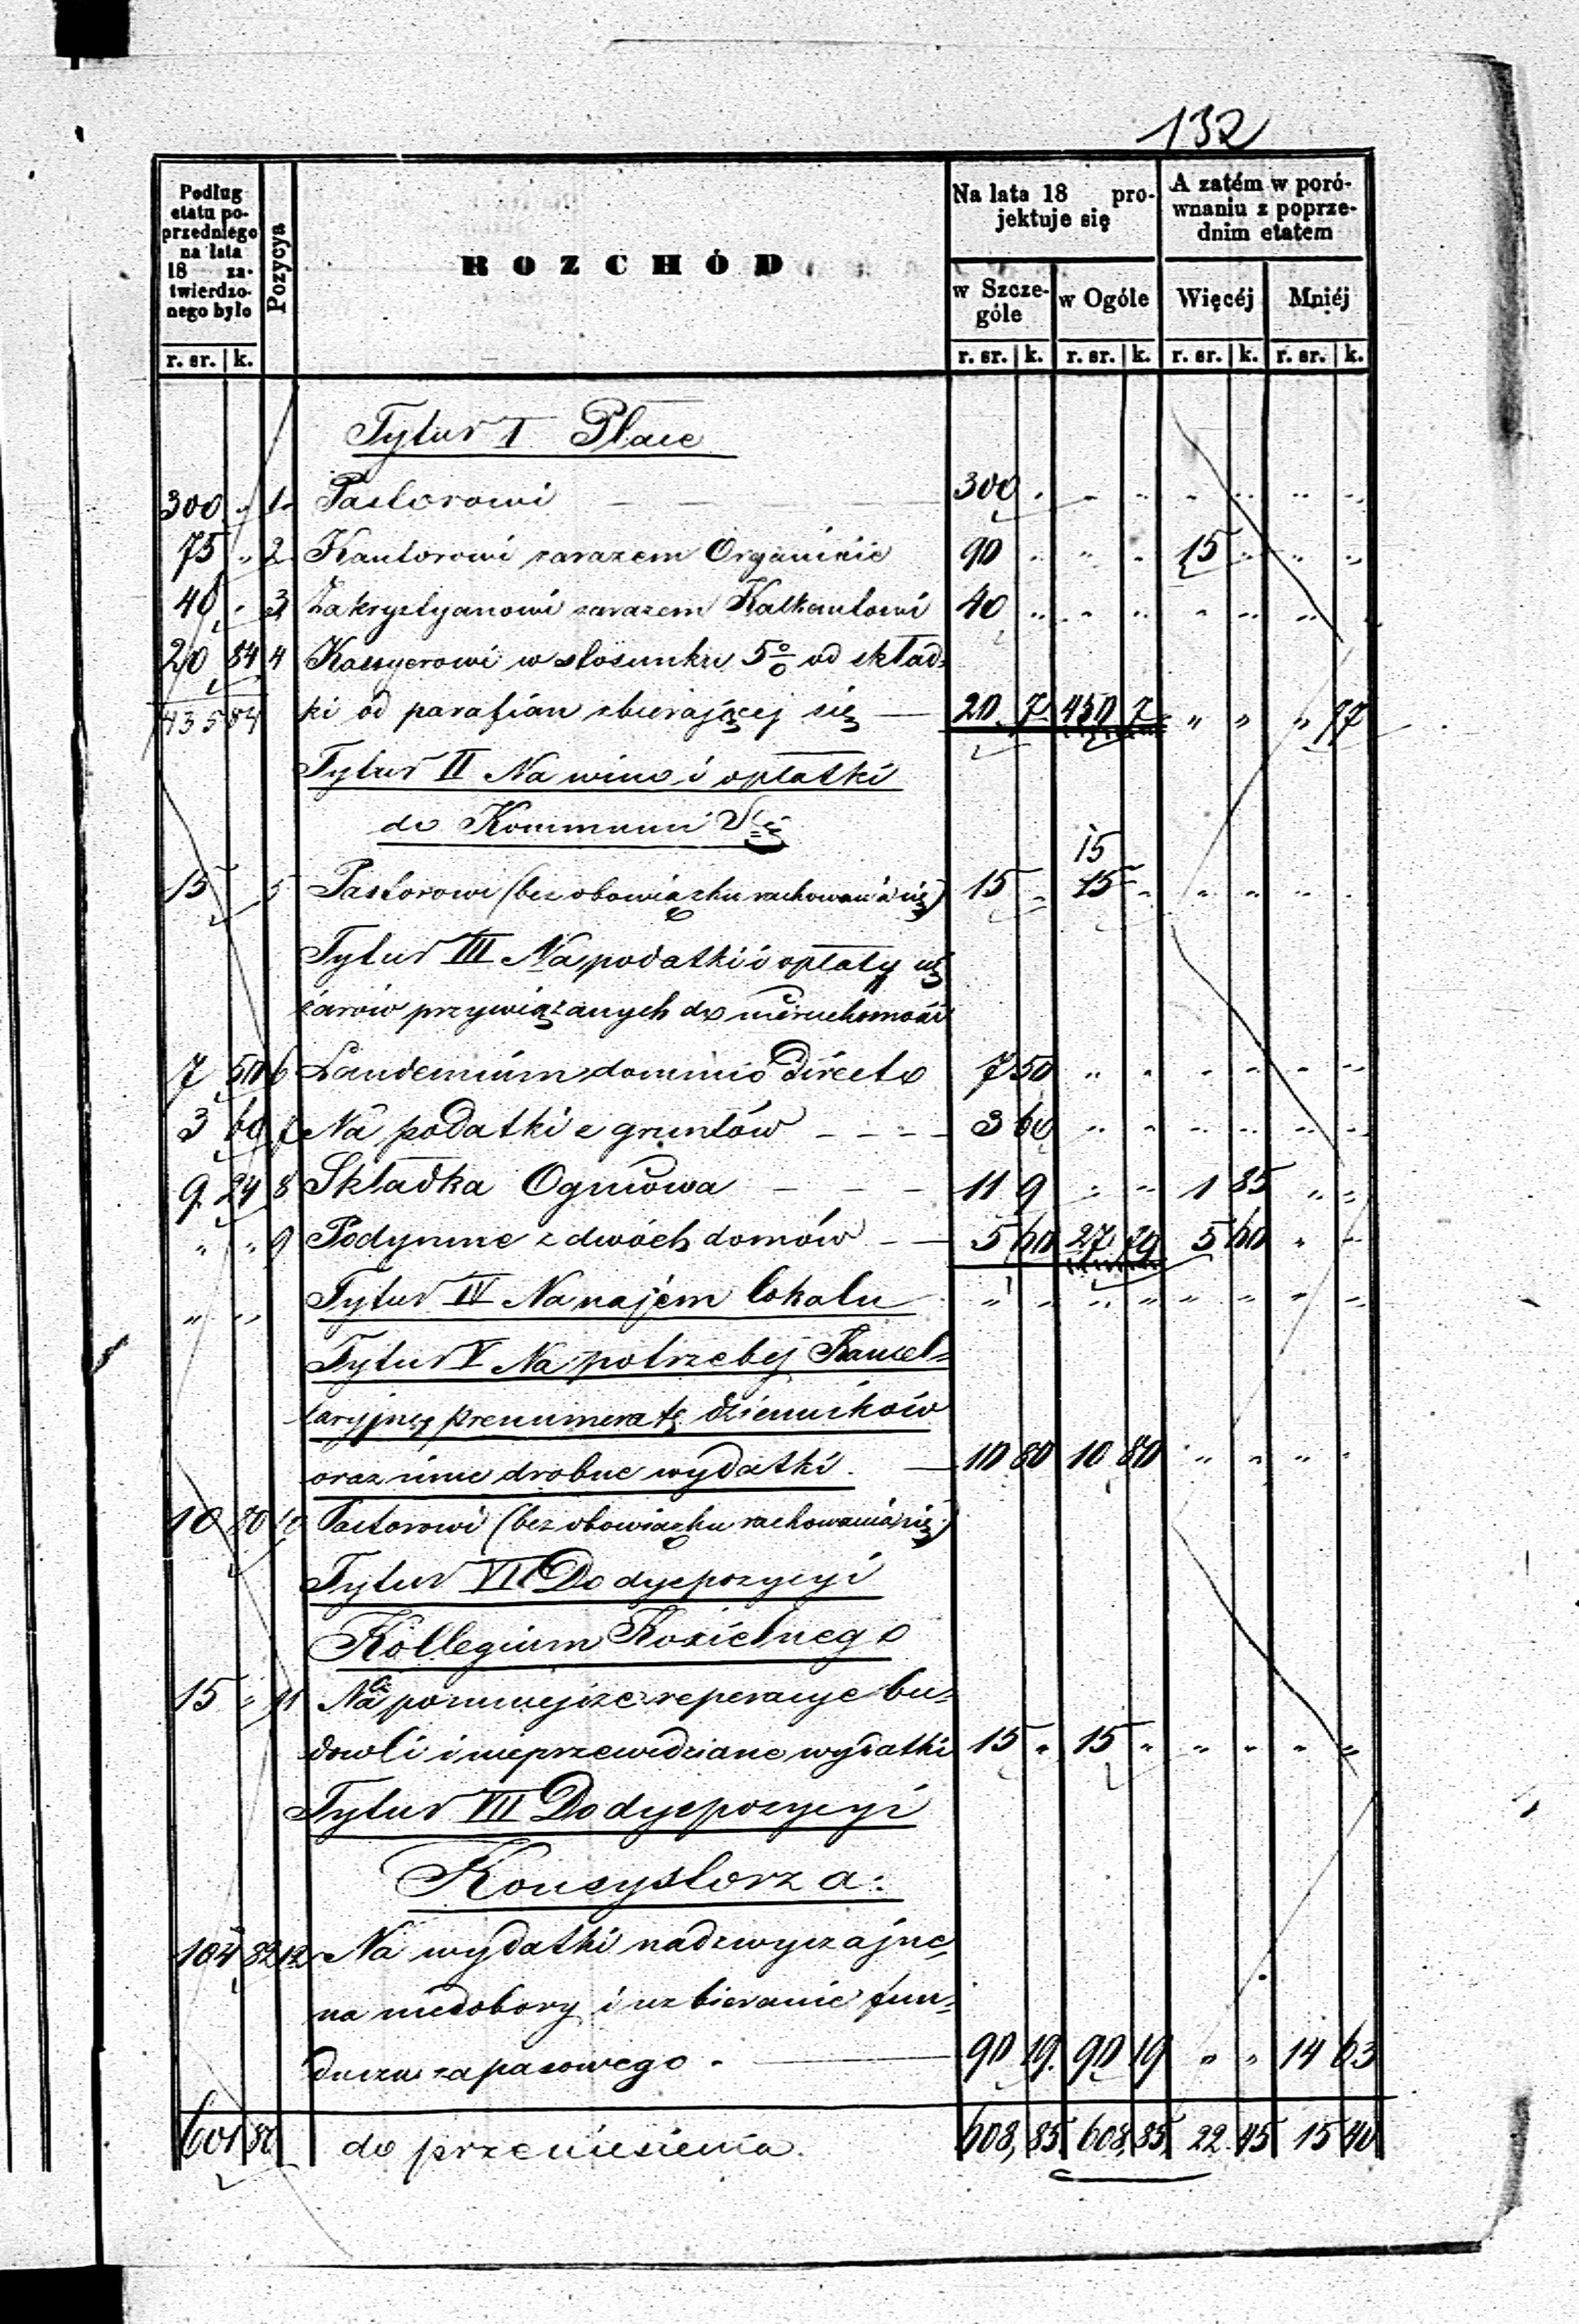 132
Podług etatu poprzedniego na lata 18 zatwierdzonego było
Pozycya
ROZCHÓD
Na lata 18 projektuje się
A zatém w porównaniu z poprzednim etatem
w Szczególe
w Ogóle
Więcéj
Mniéj
r. sr. k. r. sr. k. r. sr. k. r. sr. k. r. sr. k.
Tytuł I Płace
300 " 1 Pastorowi — 300 " " " " " " "
75 " 2 Kantorowi zarazem Organiście 90 " " " 15 " " "
40 " 3 Zakrystyanowi zarazem Kalkantowi 40 " " " " " " "
20 84 4 Kassyerowi w stosunku 5% od skład-
435 84 ki od parafian zbierającej się — 20 7 450 7 " " " 77
Tytuł II Na wino i opłatki
do Kommunii Stej
15
15 5 Pastorowi (bez obowiązku rachowania się) 15 " 15 " " " " "
Tytuł III Na podatki i opłaty cię
żarów przywiązanych do nieruchomości
7 50 6 Laudemium dominio directo 7 50 " " " " " "
3 60 7 Na podatki z gruntów - - - 3 60 " " " " " "
9 24 8 Składka Ogniowa - - - 11 9 " " 1 85 " "
" " 9 Podymne z dwóch domów - - 5 60 27 79 5 60 " "
" " Tytuł IV Na najem lokalu " " " " " " " "
Tytuł V Na potrzeby Kancel-
laryjne, prenumeratę dzienników
oraz inne drobne wydatki. — 10 80 10 80 " " " "
10 80 10 Pastorowi (bez obowiązku rachowania się)
Tytuł VI Do dyspozycyi
Kollegium Kościelnego
15 " 11 Na pomniejsze reperacye bu-
dowli i nieprzewidziane wydatki 15 " 15 " " " " "
Tytuł VII Do dyspozycyi
Konsystorza:
104 82 12 Na wydatki nadzwyczajne,
na niedobory i uzbieranie fun-
duszu zapasowego. — 90 19 90 19 " " 14 63
601 80 do przeniesienia. 608, 85 608, 85, 22 45 15 40